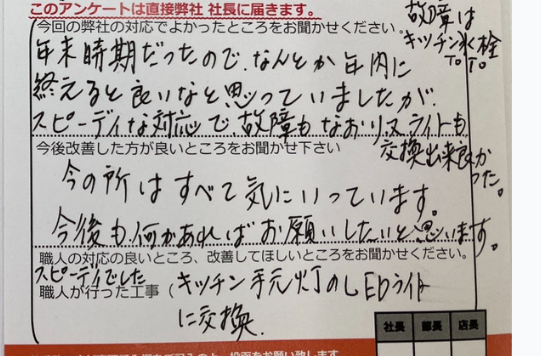 このアンケートは直接弊社 社長に届きます。
今回の弊社の対応でよかったところをお聞かせください。
故障は
キッチン水栓
年末時期だったので、なんとか年内に
終えると良いなと思っていましたが、
スピーディな対応で、故障もなおり、又ライトも
交換出来良かった。
今後改善した方が良いところをお聞かせ下さい
今の所はすべて気にいっています。
今後も何かあればお願いしたいと思います。
職人の対応の良いところ、改善してほしいところをお聞かせください。
スピーディでした
職人が行った工事(キッチン手元灯のLEDライト
に交換.
社長 部長 店長